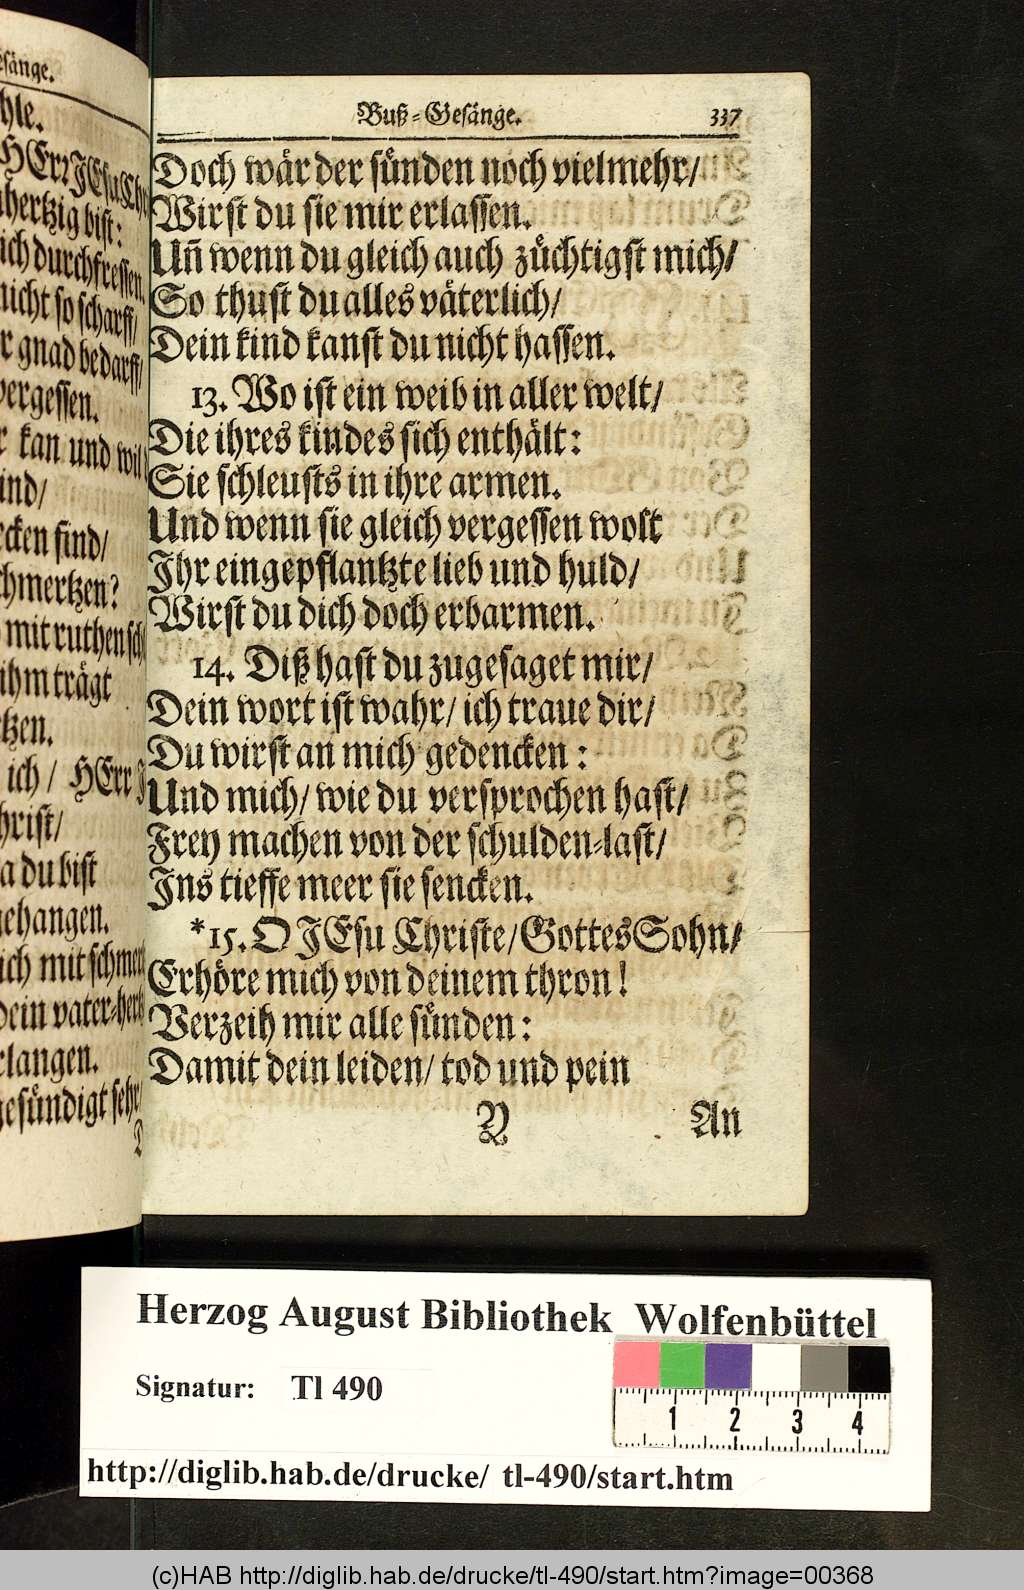 esänge.
hle.
HErr JEsu Chr
hertzig bist:
ich durchfressen,
nicht so scharff/
r gnad bedarff/
vergessen.
r kan und wil
ind/
cken find/
hmertzen?
mit ruthen sch
ihm trägt
tzen.
ich/ HErr J
hrist/
a du bist
gehangen.
ich mit schmer
dein vater-hertz
rlangen.
gesündigt sehr/
D
Buß-Gesänge. 337
Doch wär der sünden noch vielmehr/
Wirst du sie mir erlassen.
Uñ wenn du gleich auch züchtigst mich/
So thust du alles väterlich/
Dein kind kanst du nicht hassen.
13. Wo ist ein weib in aller welt/
Die ihres kindes sich enthält:
Sie schleusts in ihre armen.
Und wenn sie gleich vergessen wolt
Ihr eingepflantzte lieb und huld/
Wirst du dich doch erbarmen.
14. Diß hast du zugesaget mir/
Dein wort ist wahr/ ich traue dir/
Du wirst an mich gedencken:
Und mich/ wie du versprochen hast/
Frey machen von der schulden-last/
Ins tieffe meer sie sencken.
*15. O JEsu Christe/ Gottes Sohn/
Erhöre mich von deinem thron!
Verzeih mir alle sünden:
Damit dein leiden/ tod und pein
Y An
Herzog August Bibliothek Wolfenbüttel
Signatur: Tl 490
1 2 3 4
http://diglib.hab.de/drucke/ tl-490/start.htm
(c)HAB http://diglib.hab.de/drucke/tl-490/start.htm?image=00368